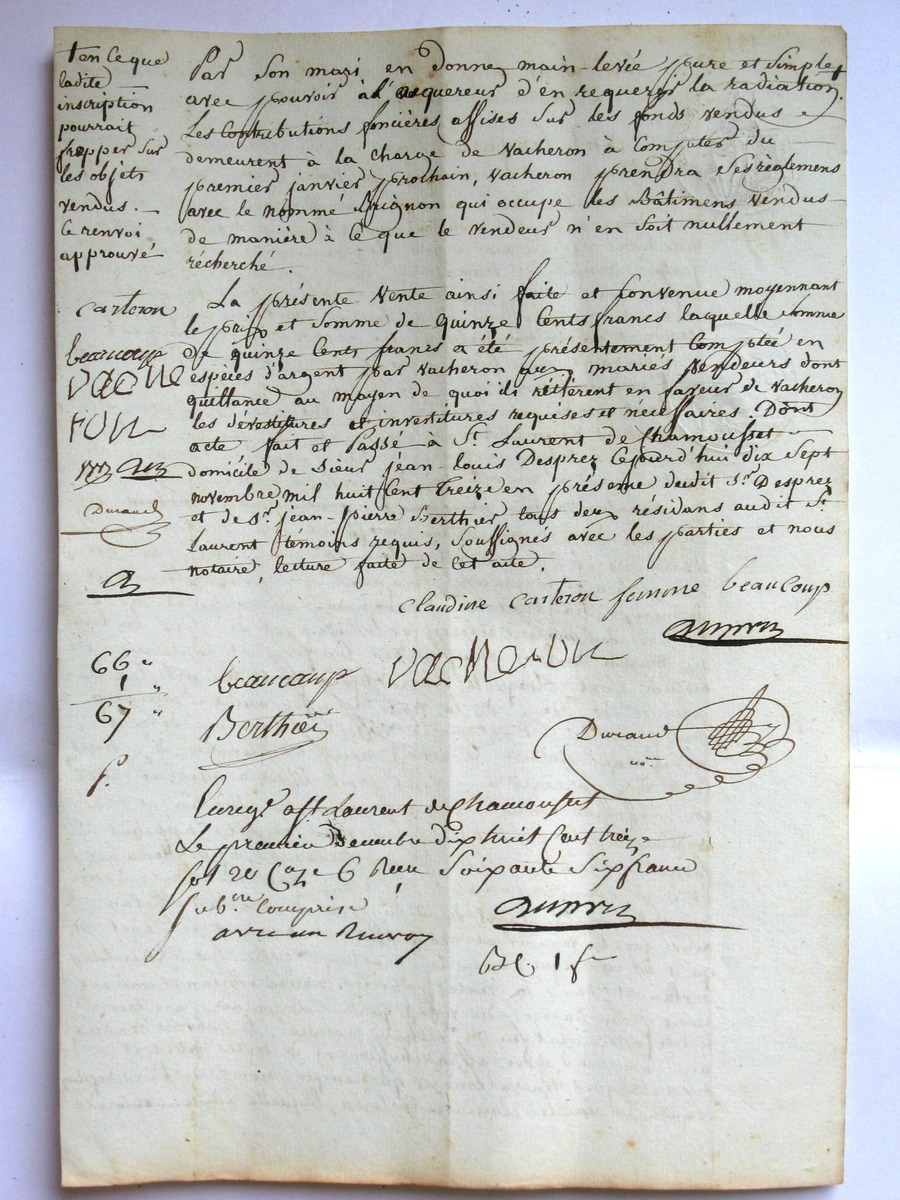 † en ce que
ladite
inscription
pourrait
frapper sur
les objets
vendus. —
ce renvoi
approuvé
carteron
beaucoup
vache
ron
Durand
Par son mari en donne main-levée pure et simple †
avec pouvoir à l'acquereur d'en requerir la radiation.
Les Contributions foncières assises sur les fonds vendus
demeurent à la charge de vacheron à compter du
premier janvier prochain, vacheron prendra ses règlemens
avec le nommé Brignon qui occupe les Bâtimens vendus
de manière à ce que le vendeur n'en soit nullement
récherché.
La présente vente ainsi faite et convenue moyennant
le prix et somme de quinze Cents francs laquelle somme
de quinze Cents francs a été présentement Comptée en
espèces d'argent par vacheron aux mariés vendeurs dont
quittance au moyen de quoi ils réitèrent en faveur de vacheron
les dévestitures et investitures requises et nécessaires. Dont
acte fait et Passé à St. Laurent de Chamousset
domicile de Sieur jean-louis Desprez Cejourd'hui dix sept
novembre mil huit Cent treize en présence dudit Sr. Desprez
et de Sr. jean-pierre Berthier tous deux résidans audit St.
laurent témoins requis, soussignés avec les parties et nous
notaire, lecture faite de cet acte.
claudine carteron femme beaucoup
66 "
1 "
67 "
beaucoup vacheron
Berthier
Durand
nre
f.
Enregé. à St. Laurent de Chamousset
Le premier Decembre dix huit Cent treize
fol 20 Caze 6 Reçu Soixante Six francs
Subon Comprise
avec un Renvoy
1 f